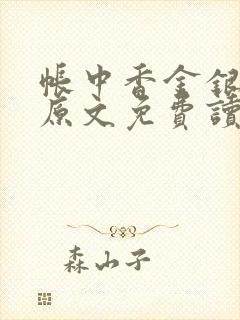 帳中香金銀
原文免費讀
森山子